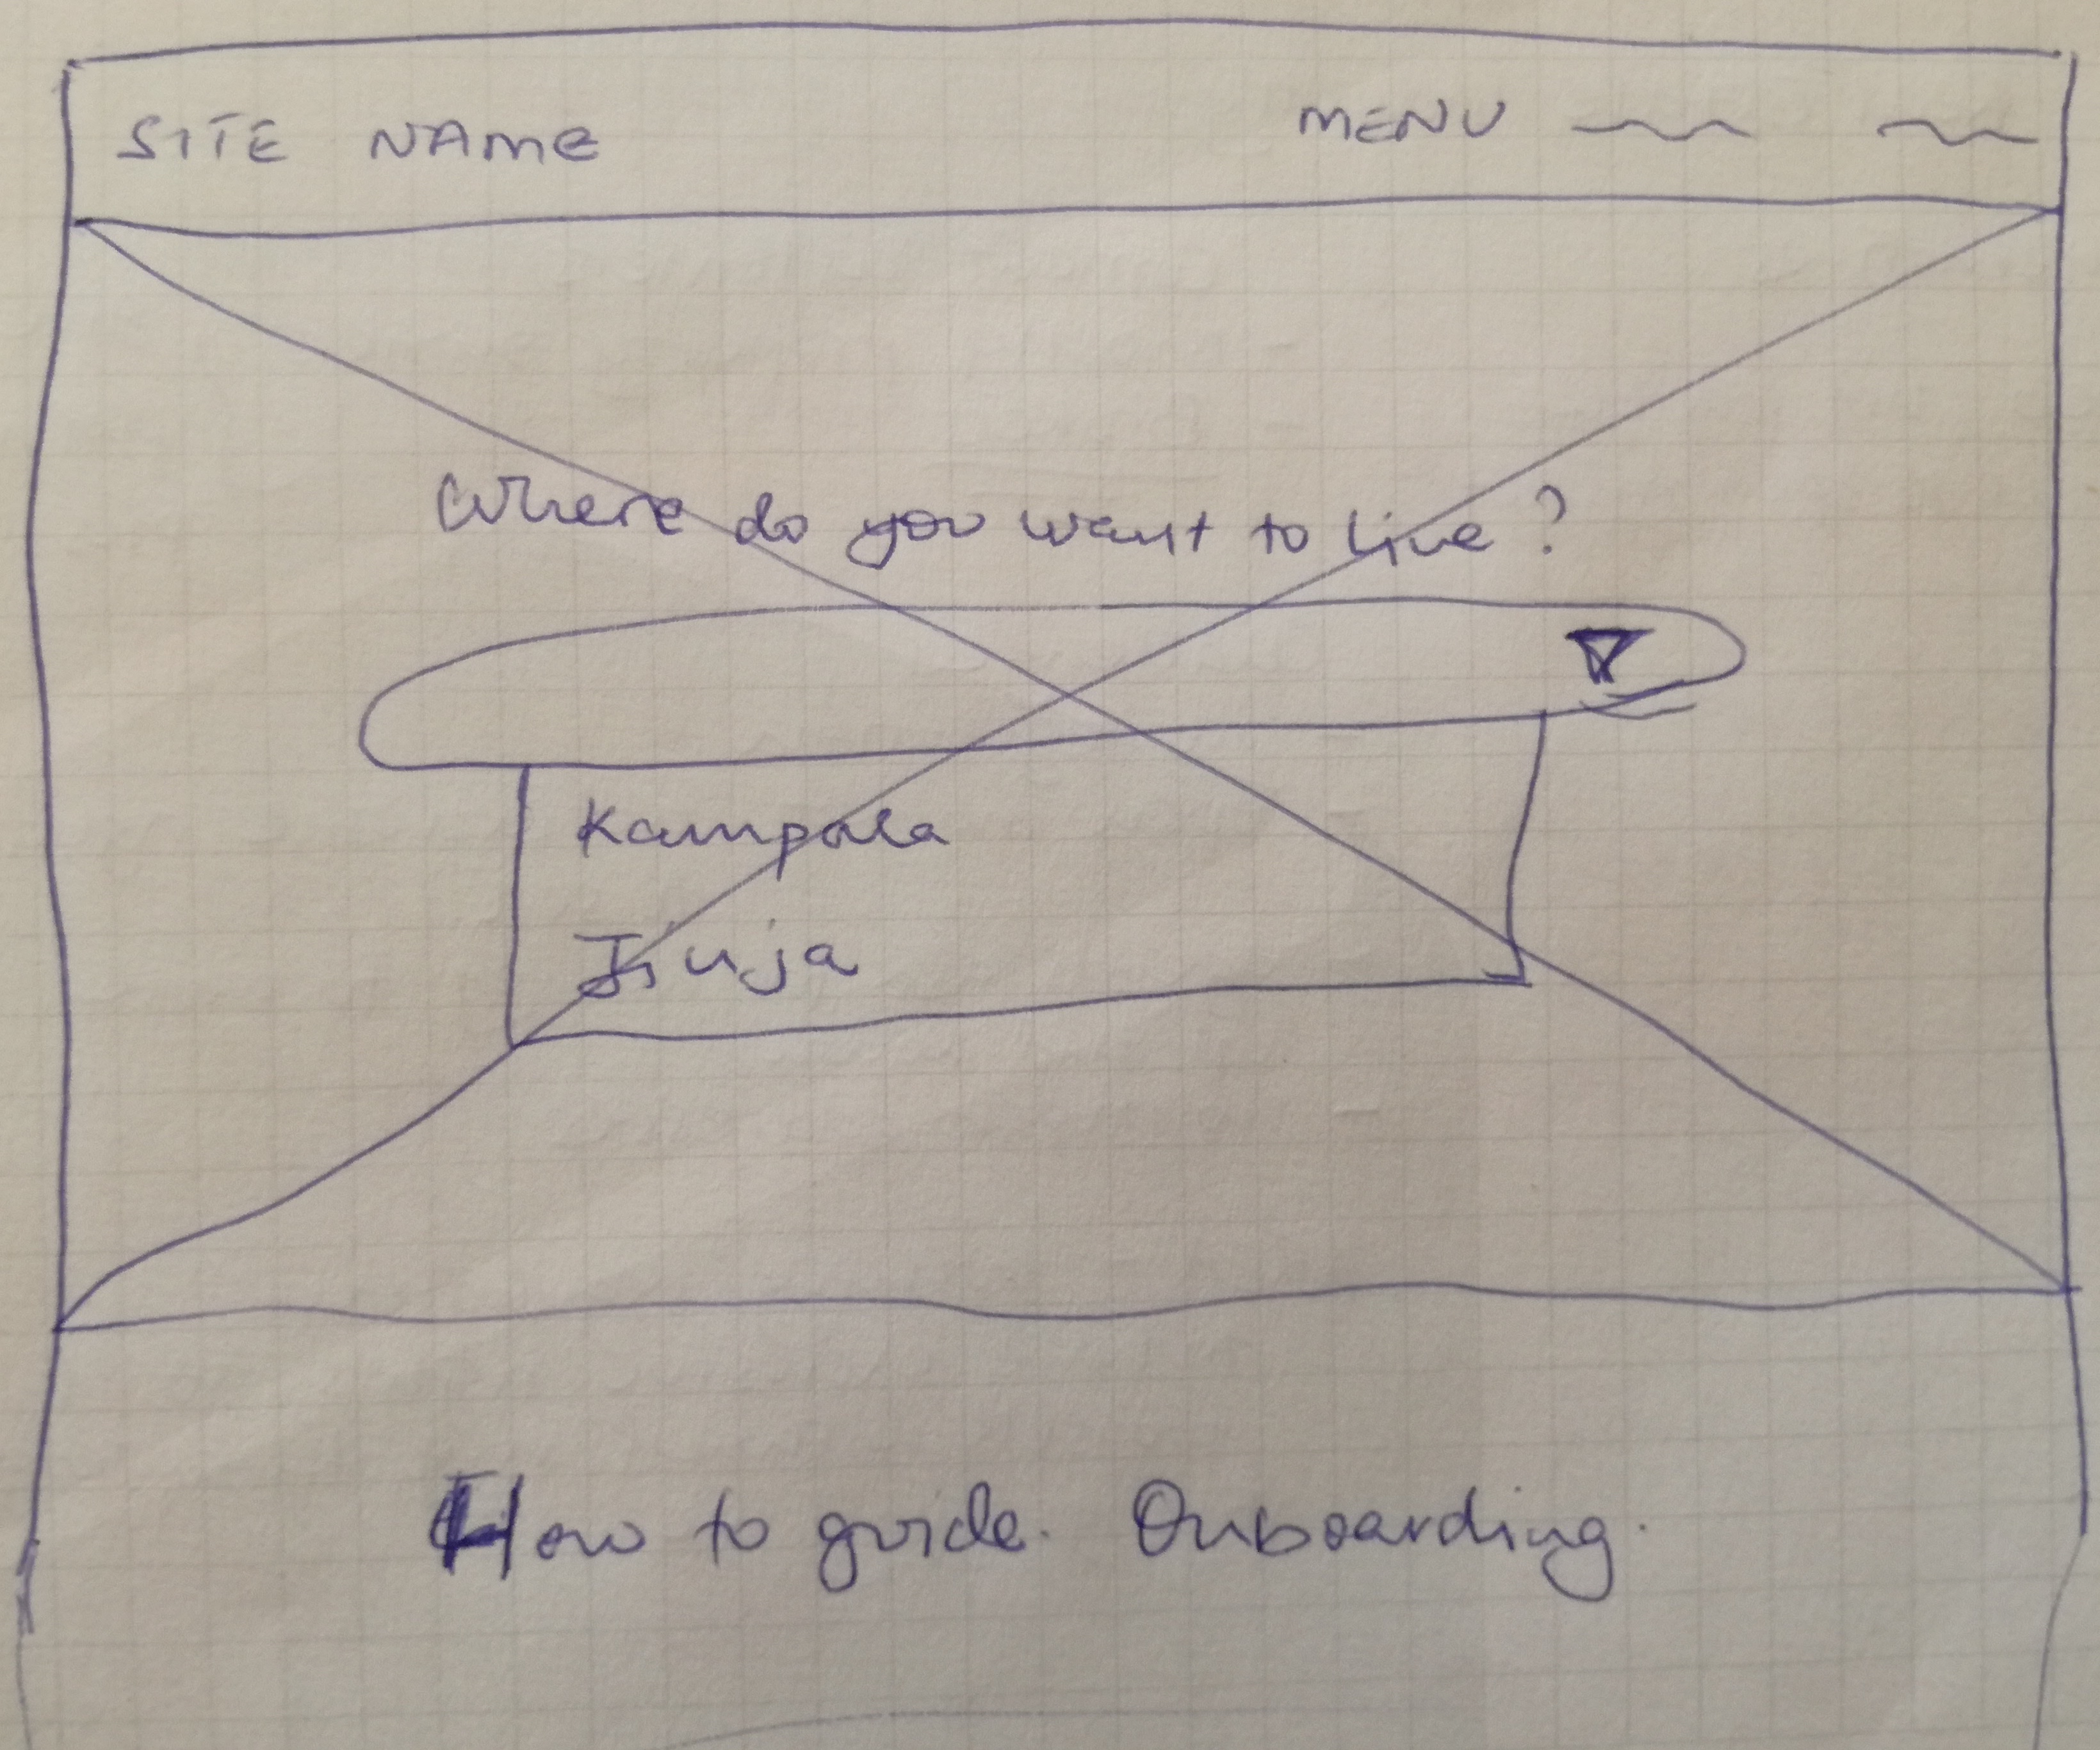 SITE NAME MENU
Where do you want to live?
Kampala
Jinja
How to guide. Onboarding.